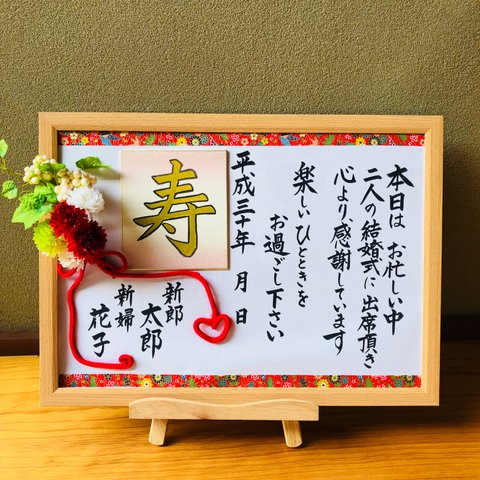 本日は お忙しい中
二人の結婚式に出席頂き
心より、感謝しています
楽しいひとときを
お過ごし下さい
平成三十年 月 日
寿
新郎
太郎
新婦
花子